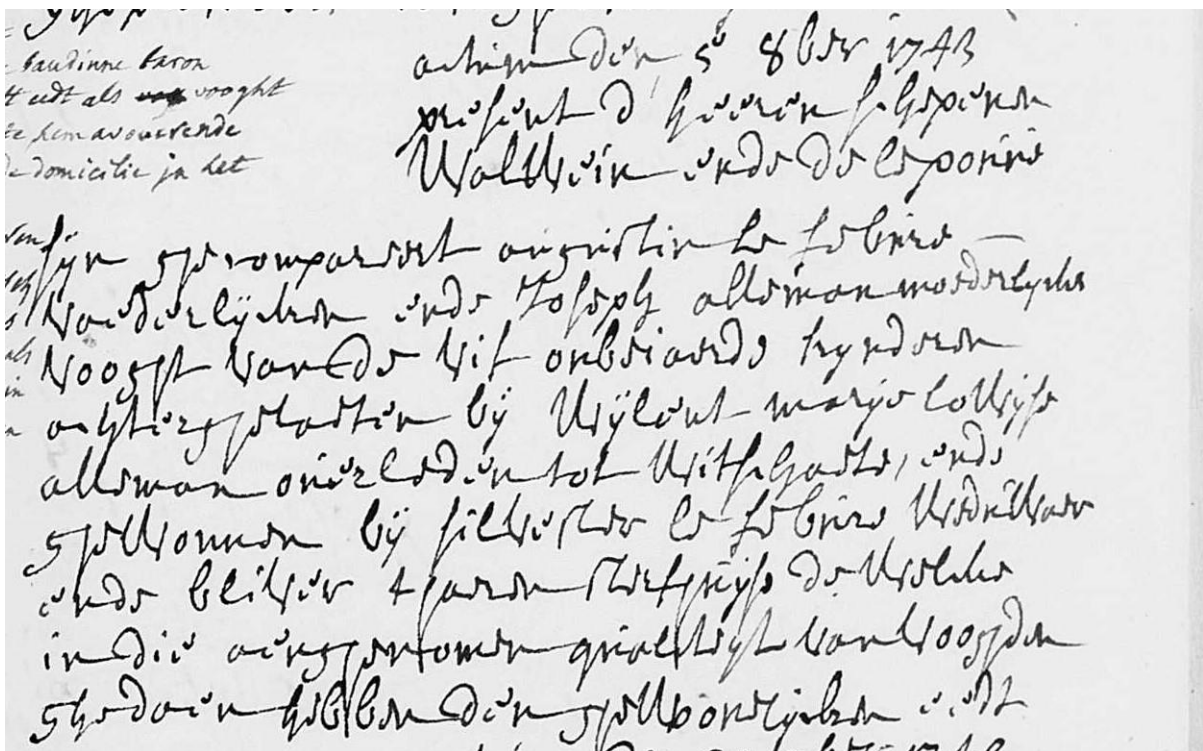 baudinne baron
eedt als vooght
hem avouerende
domicilie in het
actum den 5e 8ber 1743
present d'heeren schepenen
Walwein ende de le
sijn ghecompareert augustin le febure
vaederlycken ende Joseph alleman moederlycke
vooght van de vif onbeiaerde kynderen
achterghelaeten bij wijlent marije lowijse
alleman overleden tot witschaete, ende
ghewonnen bij silvester le febure wedúwaer
ende bliver t haeren sterfhuijse de welcke
in die aenghenomen qualiteyt van vooghden
ghedaen hebben den ghewonelijcken eedt